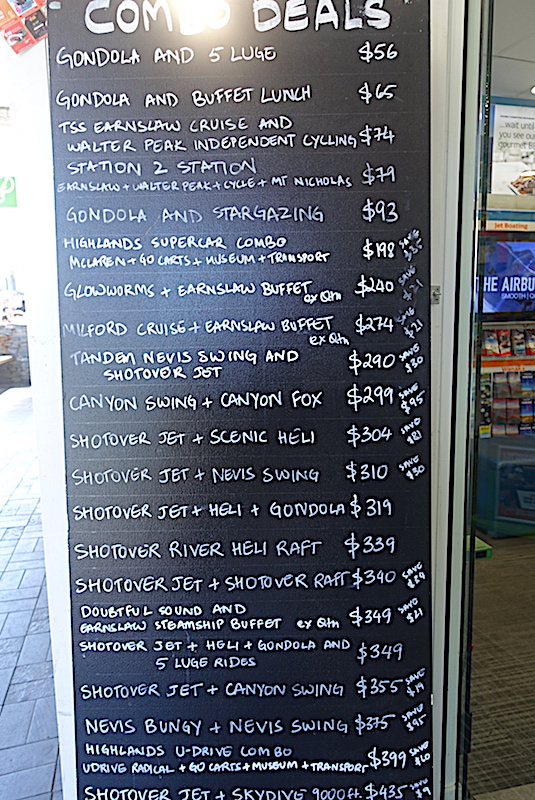 COMBO DEALS
GONDOLA AND 5 LUGE $56
GONDOLA AND BUFFET LUNCH $65
TSS EARNSLAW CRUISE AND
WALTER PEAK INDEPENDENT CYCLING $74
STATION 2 STATION
EARNSLAW + WALTER PEAK + CYCLE + MT NICHOLAS $79
GONDOLA AND STARGAZING $93
HIGHLANDS SUPERCAR COMBO
MCLAREN + GO CARTS + MUSEUM + TRANSPORT $198 SAVE $35
GLOWWORMS + EARNSLAW BUFFET ex Qtn $240 SAVE
MILFORD CRUISE + EARNSLAW BUFFET ex Qtn $274 SAVE $21
TANDEM NEVIS SWING AND
SHOTOVER JET $290 SAVE $30
CANYON SWING + CANYON FOX $299 SAVE $95
SHOTOVER JET + SCENIC HELI $304 SAVE $21
SHOTOVER JET + NEVIS SWING $310 SAVE $30
SHOTOVER JET + HELI + GONDOLA $319
SHOTOVER RIVER HELI RAFT $339
SHOTOVER JET + SHOTOVER RAFT $340 SAVE
DOUBTFUL SOUND AND
EARNSLAW STEAMSHIP BUFFET ex Qtn $349 SAVE $21
SHOTOVER JET + HELI + GONDOLA AND
5 LUGE RIDES $349
SHOTOVER JET + CANYON SWING $355 SAVE $19
NEVIS BUNGY + NEVIS SWING $375 SAVE $95
HIGHLANDS U-DRIVE COMBO
UDRIVE RADICAL + GO CARTS + MUSEUM + TRANSPORT $399 SAVE
SHOTOVER JET + SKYDIVE 9000ft. $435 SAVE $9
...wait until
you see our
gourmet
Jet Boating
HE AIRBU
SMOOTH